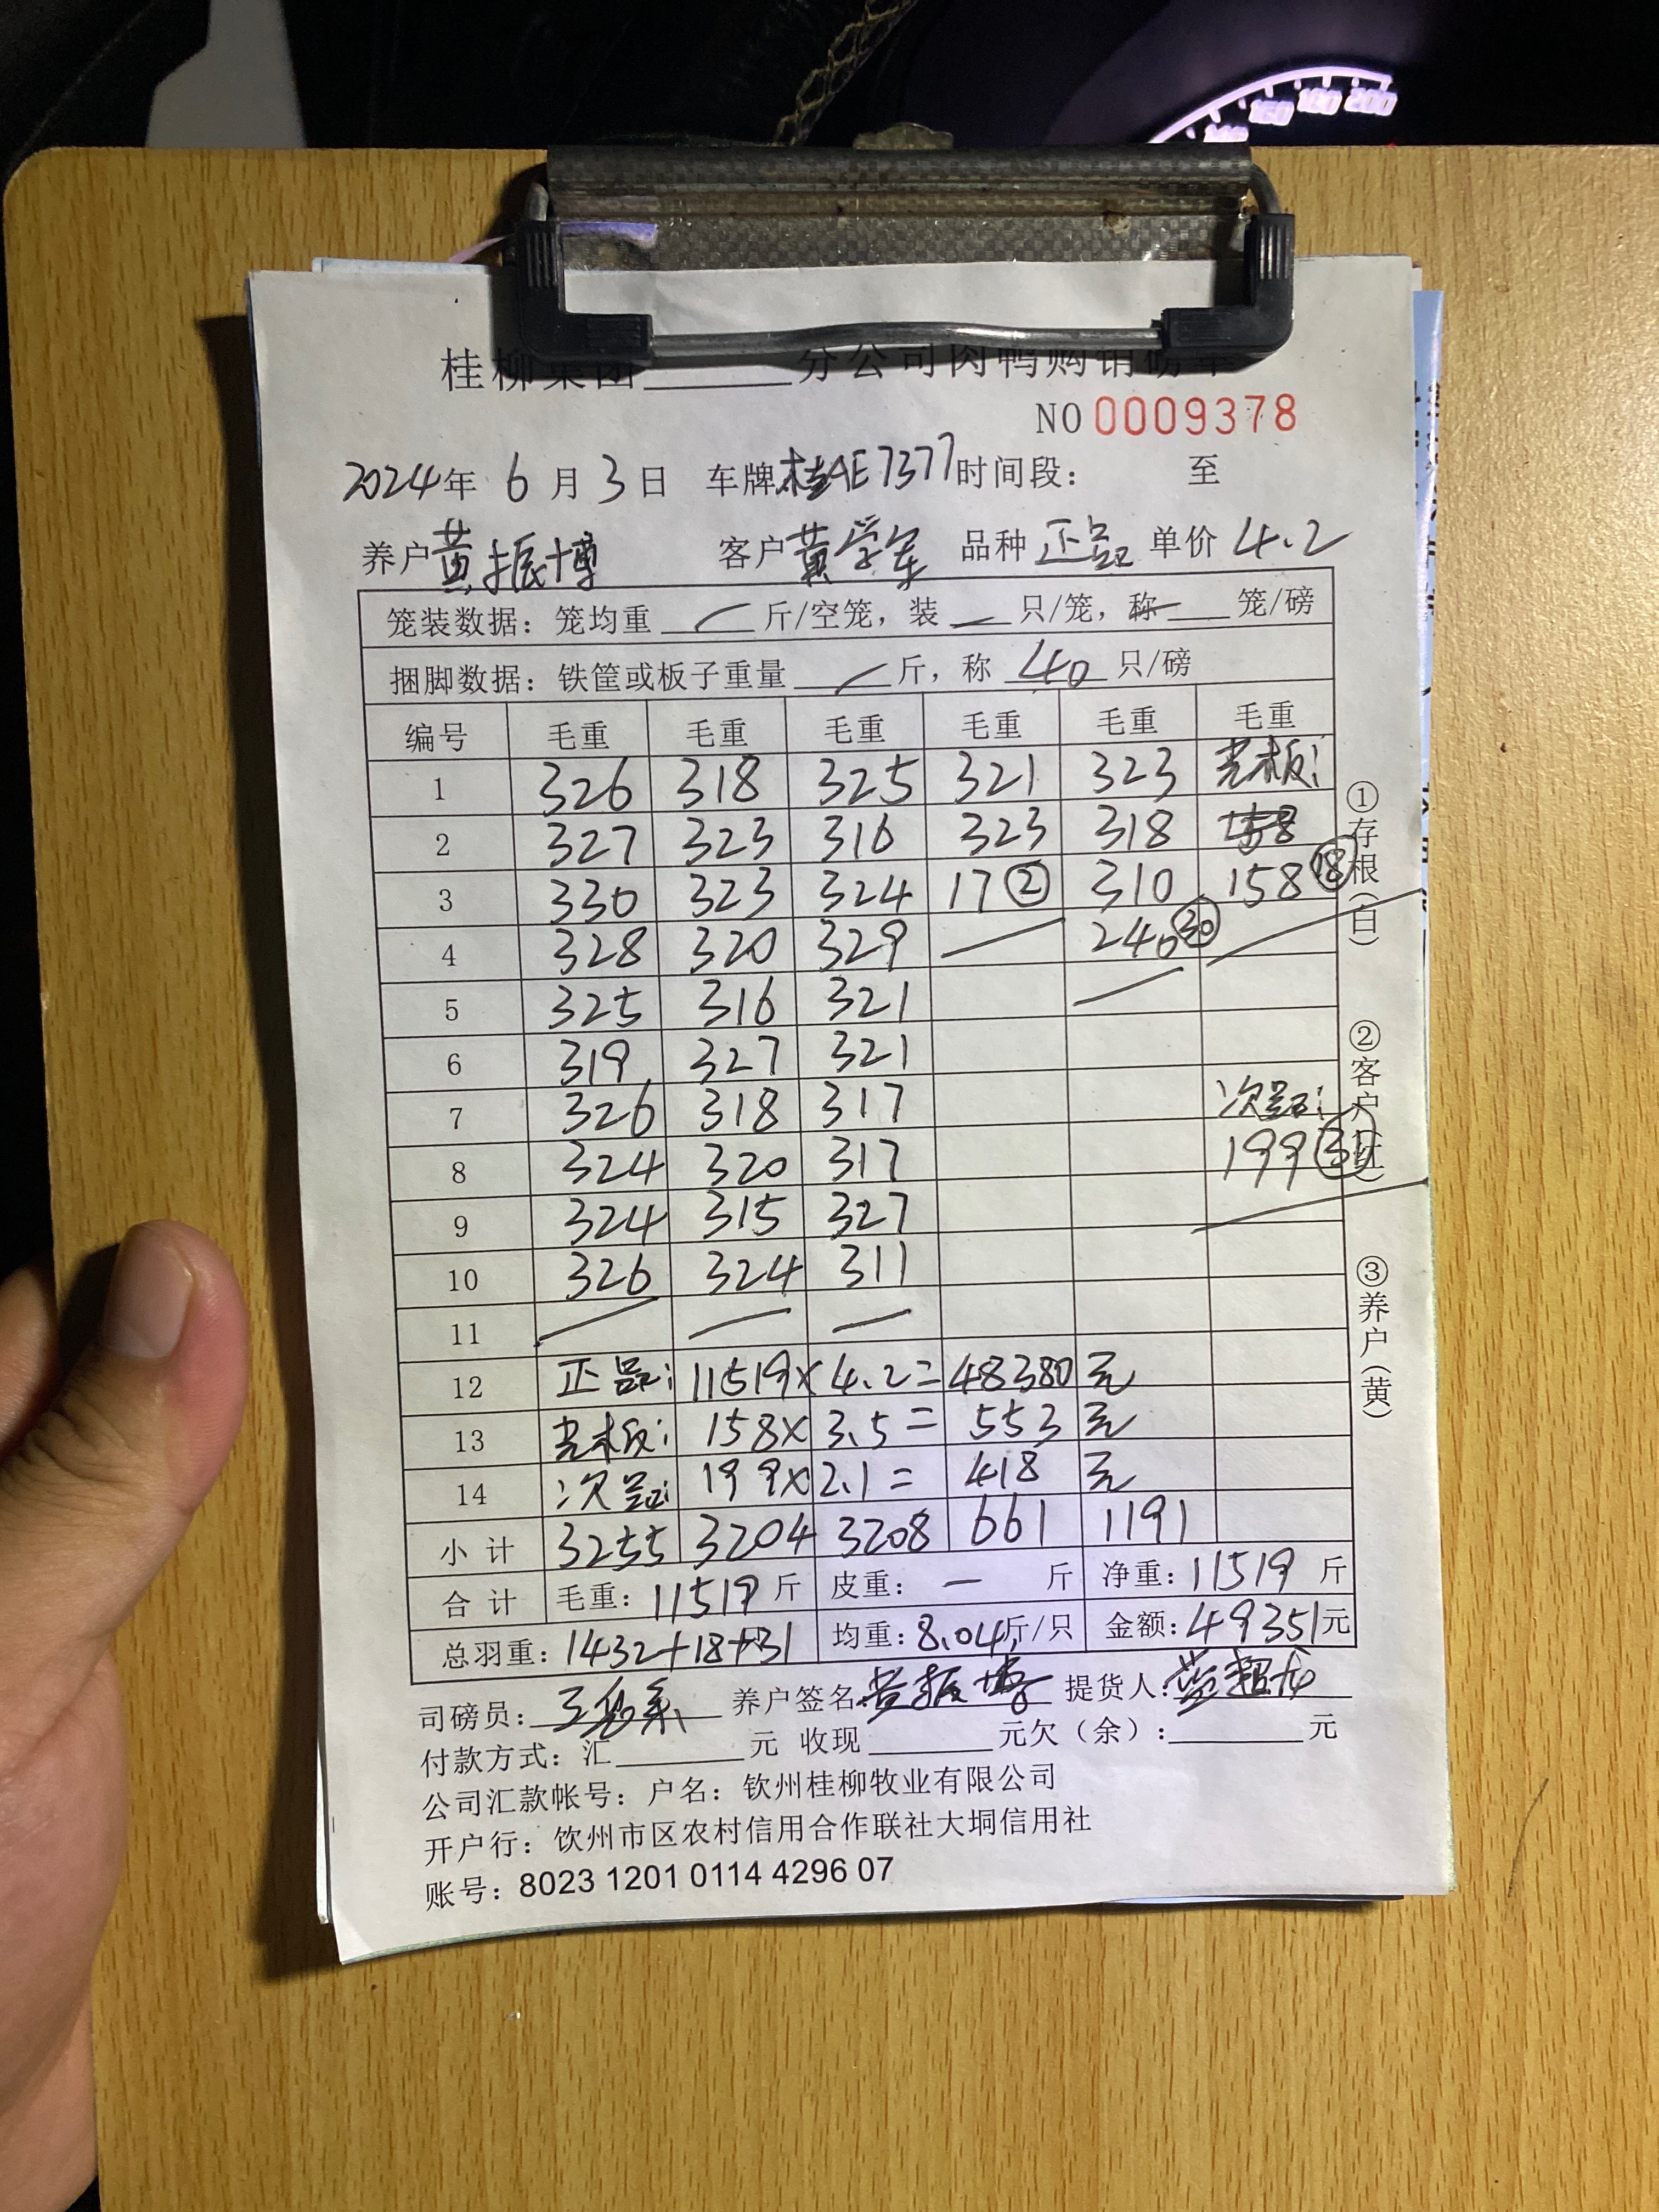 桂柳集团______分公司肉鸭购销磅单
NO 0009378
2024年 6月 3日 车牌 桂AE7377 时间段： 至
养户 黄振博 客户 黄学军 品种 正品 单价 4.2
笼装数据：笼均重 / 斤/空笼，装 / 只/笼，称 — 笼/磅
捆脚数据：铁筐或板子重量 / 斤，称 40 只/磅
编号 毛重 毛重 毛重 毛重 毛重 毛重
1 326 318 325 321 323 老板：
2 327 323 316 323 318
3 330 323 324 17② 310 158⑱
4 328 320 329 240㉚
5 325 316 321
6 319 327 321
7 326 318 317 次品：
8 324 320 317 199㉛
9 324 315 327
10 326 324 311
11
12 正品：11519×4.2=48380元
13 老板：158×3.5=553元
14 次品：199×2.1=418元
小计 3255 3204 3208 661 1191
合计 毛重：11519斤 皮重：— 斤 净重：11519斤
总羽重：1432+18+31 均重：8.04斤/只 金额：49351元
司磅员： 养户签名 黄振博 提货人：
付款方式：汇______元 收现______元欠（余）：______元
公司汇款帐号：户名：钦州桂柳牧业有限公司
开户行：饮州市区农村信用合作联社大垌信用社
账号：8023 1201 0114 4296 07
①存根（白）
②客户（红）
③养户（黄）
160 180 200